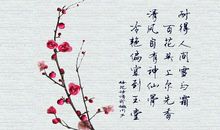 耐得人间雪与霜
百花头上尔先香
清风自有神仙骨
冷艳偏宜到玉堂